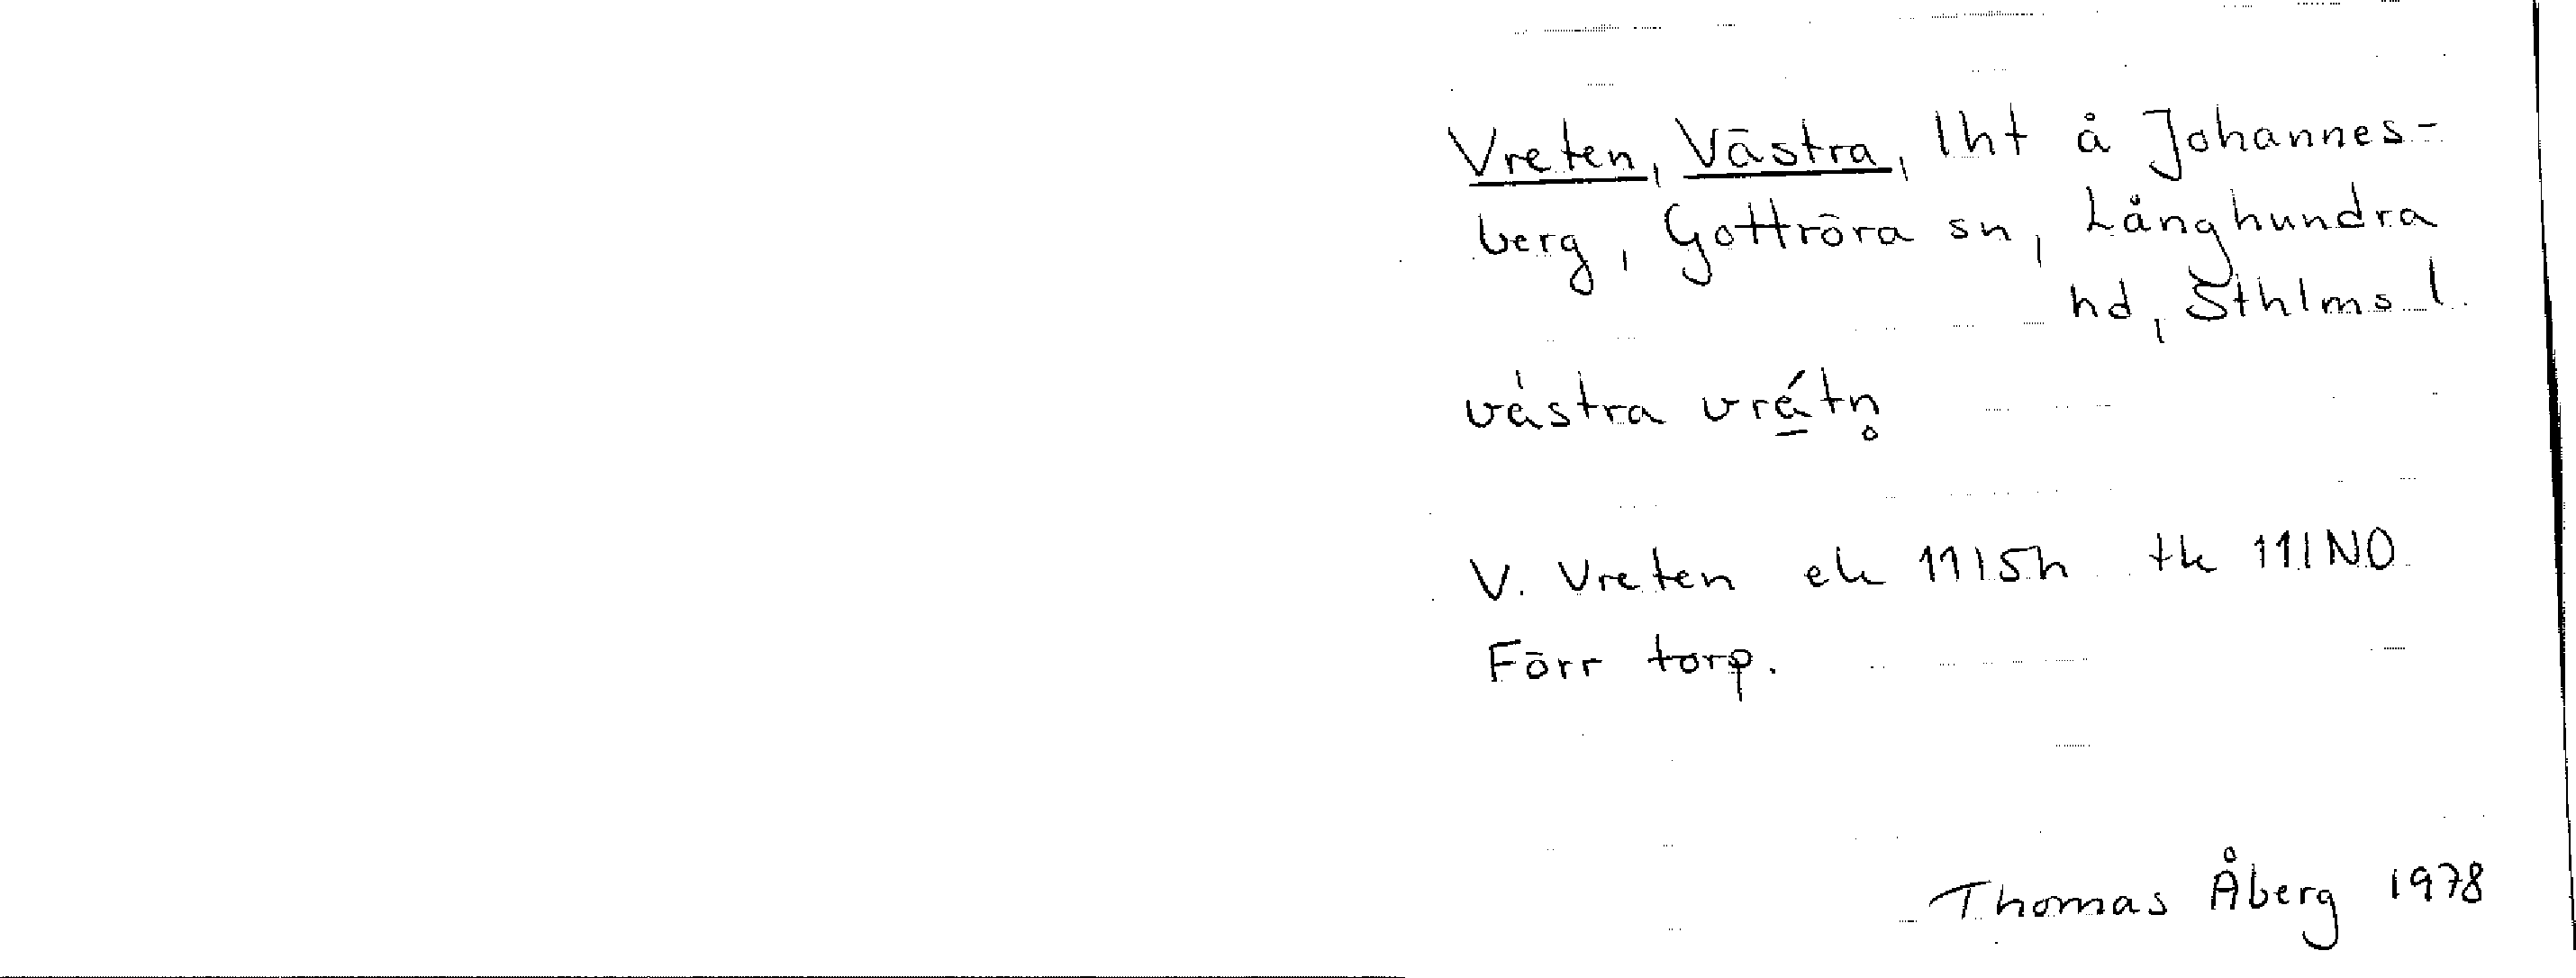 Vreten, Västra, lht å Johannes-
berg, Gottröra sn, Långhundra
hd, Sthlms l.
vástra vrátn̥
V. Vreten ek 11I5h tk 11INO
Förr torp.
Thomas Åberg 1978